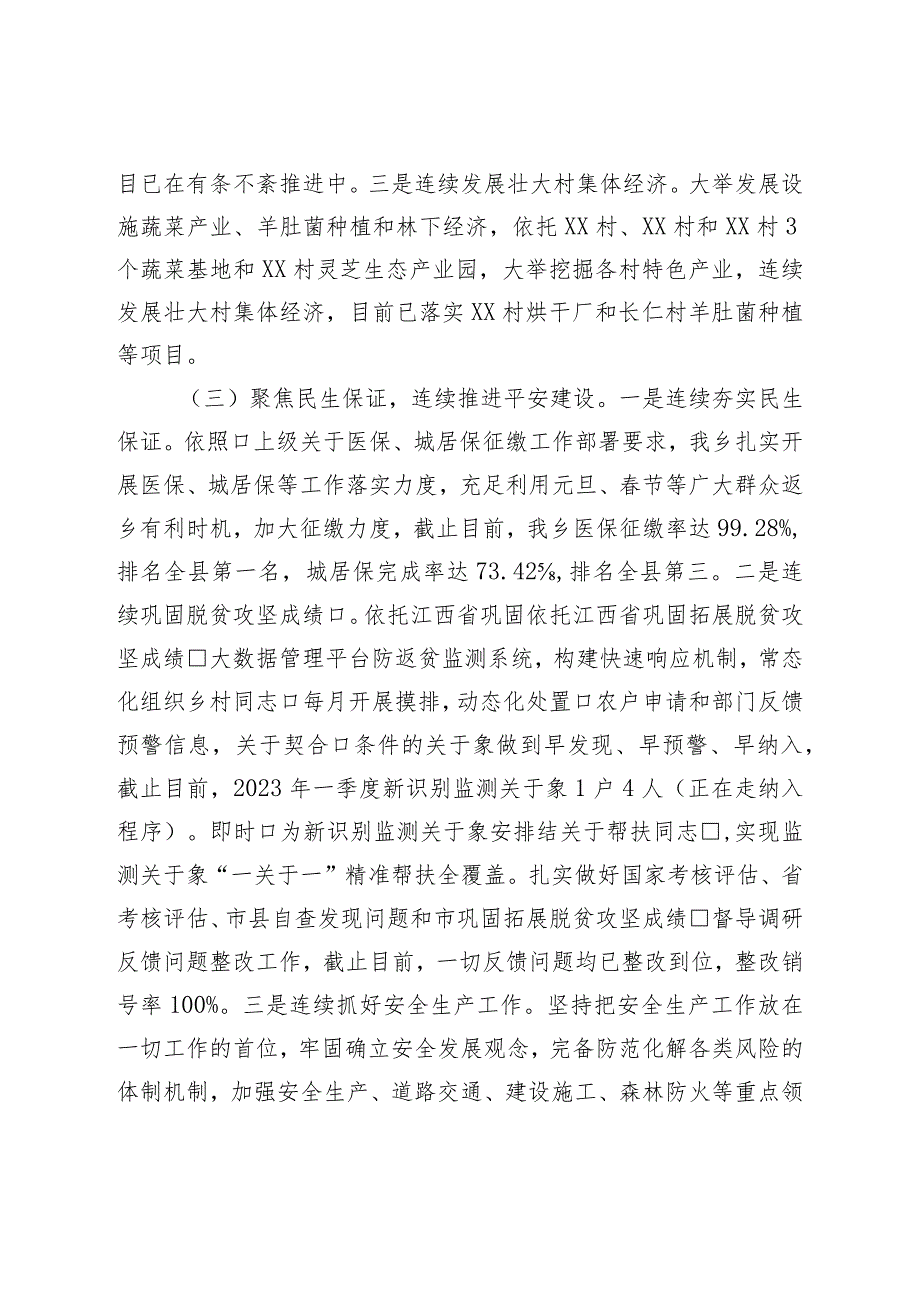 目已在有条不紊推进中。三是连续发展壮大村集体经济。大举发展设
施蔬菜产业、羊肚菌种植和林下经济，依托 XX 村、XX 村和 XX 村 3
个蔬菜基地和 XX 村灵芝生态产业园，大举挖掘各村特色产业，连续
发展壮大村集体经济，目前已落实 XX 村烘干厂和长仁村羊肚菌种植
等项目。
（三）聚焦民生保证，连续推进平安建设。一是连续夯实民生
保证。依照口上级关于医保、城居保征缴工作部署要求，我乡扎实开
展医保、城居保等工作落实力度，充足利用元旦、春节等广大群众返
乡有利时机，加大征缴力度，截止目前，我乡医保征缴率达 99.28%,
排名全县第一名，城居保完成率达 73.42%,排名全县第三。二是连
续巩固脱贫攻坚成绩口。依托江西省巩固依托江西省巩固拓展脱贫攻
坚成绩□大数据管理平台防返贫监测系统，构建快速响应机制，常态
化组织乡村同志口每月开展摸排，动态化处置口农户申请和部门反馈
预警信息，关于契合口条件的关于象做到早发现、早预警、早纳入，
截止目前，2023 年一季度新识别监测关于象 1 户 4 人（正在走纳入
程序）。即时口为新识别监测关于象安排结关于帮扶同志□,实现监
测关于象“一关于一”精准帮扶全覆盖。扎实做好国家考核评估、省
考核评估、市县自查发现问题和市巩固拓展脱贫攻坚成绩□督导调研
反馈问题整改工作，截止目前，一切反馈问题均已整改到位，整改销
号率 100%。三是连续抓好安全生产工作。坚持把安全生产工作放在
一切工作的首位，牢固确立安全发展观念，完备防范化解各类风险的
体制机制，加强安全生产、道路交通、建设施工、森林防火等重点领